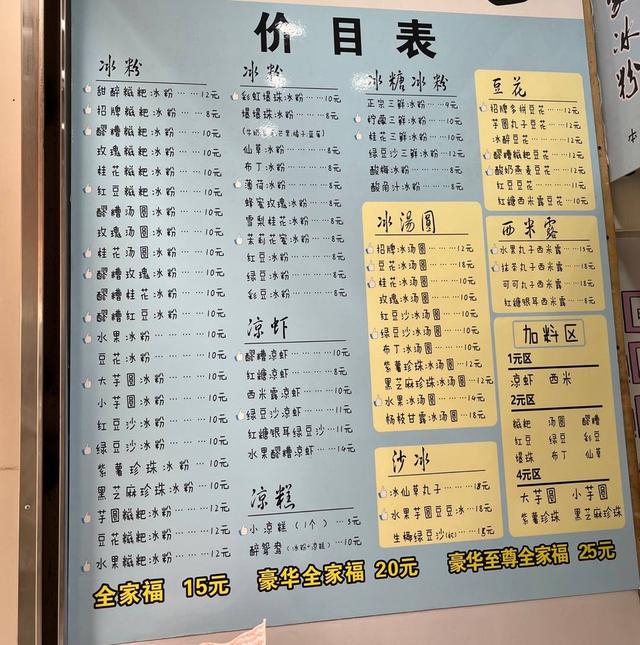 价目表
冰粉
甜醉糍粑冰粉……12元
招牌糍粑冰粉……8元
醪糟糍粑冰粉……10元
玫瑰糍粑冰粉……10元
桂花糍粑冰粉……10元
红豆糍粑冰粉……11元
醪糟汤圆冰粉……10元
玫瑰汤圆冰粉……10元
桂花汤圆冰粉……10元
醪糟玫瑰冰粉……10元
醪糟桂花冰粉……10元
醪糟红豆冰粉……10元
水果冰粉……10元
豆花冰粉……10元
大芋圆冰粉……10元
小芋圆冰粉……10元
红豆沙冰粉……10元
绿豆沙冰粉……10元
紫薯珍珠冰粉……10元
黑芝麻珍珠冰粉……10元
芋圆糍粑冰粉……12元
豆花糍粑冰粉……12元
水果糍粑冰粉……12元
冰粉
彩虹爆珠冰粉……10元
爆爆珠冰粉……8元
仙草冰粉……8元
布丁冰粉……8元
薄荷冰粉……8元
蜂蜜玫瑰冰粉……8元
雪梨桂花冰粉……8元
茉莉花蜜冰粉……8元
红豆冰粉……8元
绿豆冰粉……8元
彩豆冰粉……8元
凉虾
醪糟凉虾……10元
红糖凉虾……8元
西米露凉虾……10元
绿豆沙凉虾……11元
红糖银耳绿豆沙…11元
水果醪糟凉虾……14元
凉糕
小凉糕(1个)……5元
醉鸳鸯(冰粉+凉糕)…10元
冰糖冰粉
正宗三鲜冰粉……9元
柠檬三鲜冰粉……10元
桂花三鲜冰粉……10元
绿豆沙三鲜冰粉…12元
酸梅冰粉……8元
酸角汁冰粉……8元
冰汤圆
招牌冰汤圆……12元
豆花冰汤圆……18元
桂花冰汤圆……10元
玫瑰冰汤圆……10元
红豆沙冰汤圆……10元
绿豆沙冰汤圆……10元
布丁冰汤圆……10元
紫薯珍珠冰汤圆…12元
黑芝麻珍珠冰汤圆…12元
水果冰汤圆……14元
杨枝甘露冰汤圆…18元
沙冰
冰仙草丸子……18元
水果芋圆豆豆冰…18元
生椰绿豆沙……18元
豆花
招牌多拼豆花……12元
芋圆丸子豆花……12元
冰醉豆花……12元
醪糟糍粑豆花……12元
酸奶燕麦豆花……12元
红豆豆花……10元
红糖糍粑豆花……10元
西米露
水果丸子西米露…15元
抹茶丸子西米露…18元
可可丸子西米露…18元
红糖银耳西米露…8元
加料区
1元区
凉虾 西米
2元区
糍粑 汤圆 醪糟
红豆 绿豆 彩豆
爆珠 布丁 仙草
4元区
大芋圆 小芋圆
紫薯珍珠 黑芝麻珍珠
全家福 15元 豪华全家福 20元 豪华至尊全家福 25元
冰粉